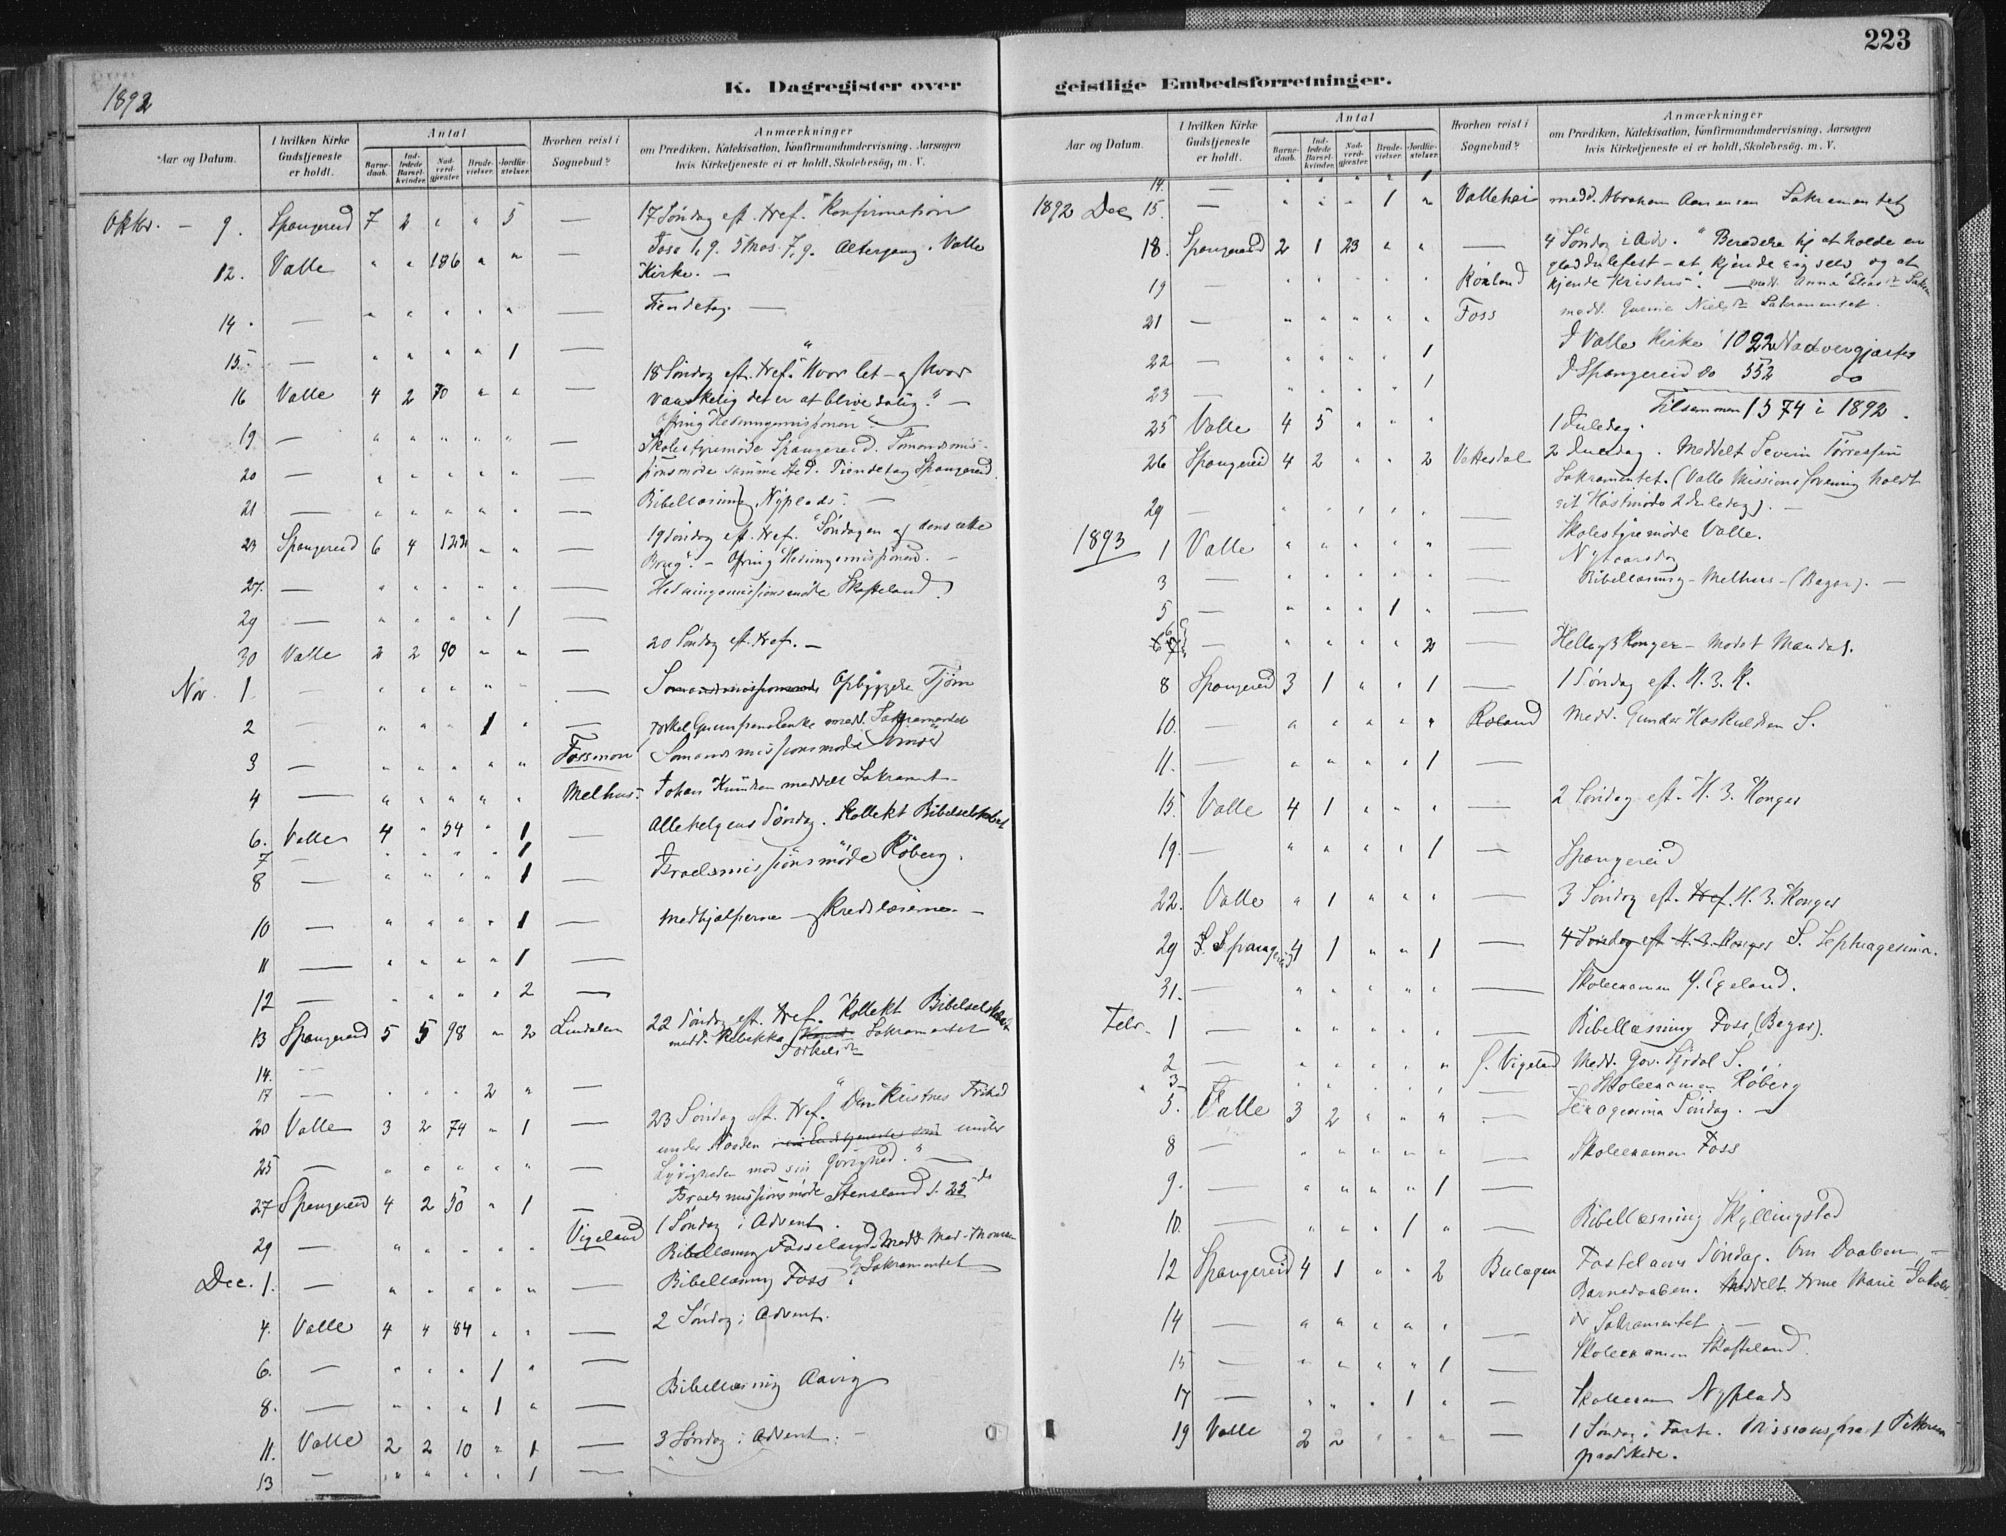 223
1892
K. Dagregister over
geistlige Embedsforretninger.
Aar og Datum.
I hvilken Kirke Gudstjeneste er holdt.
Antal
Barnedaab.
Indledede Barselkvinder.
Nadverdgjæster.
Brudevielser.
Jordfæstelser.
Hvorhen reist i Sognebud?
Anmærkninger
om Prædiken, Katekisation, Konfirmandundervisning, Aarsagen
hvis Kirketjeneste ei er holdt, Skolebesøg, m. V.
Oktbr. - 9. Spangereid 7 2 " " 5 — 17 Søndag eft. tref. Konfirmation
12. Valle " " 186 " " — Josv 1,9. 5 Mos. 7,9. Altergang. Valle
Kirke. —
14. — " " " " " — Tiendetag. —
15. — " " " " 1 —
16 Valle 4 2 70 " " — 18 Søndag eft. tref. "Hvor let - og hvor
vanskelig det er at blive salig." —
Ofring Hedningemissionen
19 — " " " " " — Skolestyremøde Spangereid. Sømandsmis-
20 — " " " " " sionsmøde samme Sted. Tiendetag Spangereid
21 — " " " " " Bibellæsning Nyplads. —
23 Spangereid 6 4 122 " " — 19 Søndag eft. tref. "Søndagen og dens rette
Brug". - Ofring Hedningemissionen. —
27. — " " " " " — Hedningemissionsmøde Skofteland
29 — " " " " 1 —
30 Valle 2 2 90 " " — 20 Søndag eft. tref. —
Nov. 1 — " " " " " — Opbyggelse Tjøm
2 — " " " 1 " —
3 — " " " " " Fossmon Sømandsmissionsmøde
4 — " " " " " Melhus. Johan Knudsen meddelt Sakrament
6. Valle 4 " 54 " 1 — Allehelgens Søndag. Kollekt Bibelselskabet
7 — " " " " 1
8 — " " " " 1 — Israelsmissionsmøde Røberg.
10 — " " " " 1 — Medhjælperne — og Kredslæserne. —
11 — " " " " 1 —
12 — " " " " 2 —
13 Spangereid 5 5 98 " 2 Lindalen 22 Søndag eft. tref. Kollekt Bibelselskabet
medd. Rebekka Torkelsdr Sakramentet
14. —
17 — " " " 2 " —
20 Valle 3 2 74 " 1 — 23 Søndag eft. tref. "Den Kristnes Frihed
under Naaden under
Lydigheden mod sin Øvrighed." —
25 — " " " " " — Israelsmissionsmøde Stensland d. 25de
27 Spangereid 4 2 50 " 1 — 1 Søndag i Advent.
29 — " " " " " Vigeland Bibellæsning Fosseland
Sakramentet
Dec. 1. — " " " " " — Bibellæsning Foss.
4. Valle 4 " 84 " " — 2 Søndag i Advent.
6. — " " " 1 " —
8. — " " " 1 " — Bibellæsning Aavig
11. Valle 2 2 10 " 1 — 3 Søndag i Advent. —
13 — " " " " 1 —
Aar og Datum.
I hvilken Kirke Gudstjeneste er holdt.
Antal
Barnedaab.
Indledede Barselkvinder.
Nadverdgjæster.
Brudevielser.
Jordfæstelser.
Hvorhen reist i Sognebud?
Anmærkninger
om Prædiken, Katekisation, Konfirmandundervisning, Aarsagen
hvis Kirketjeneste ei er holdt, Skolebesøg, m. V.
14. — " " " " 1
1892 Dec 15. — " " " 1 " Vallehei medd. Abraham Aanensen Sakramentet
18. Spangereid 2 1 23 " " — 4 Søndag i Adv. "Berede sig at holde en
glad Julefest - at kjende sig selv og at
19 — " " " " " kjende Kristus". — medd. Anna Eliasdr Sakr
21 — " " " " " Foss medd. Nielsdr Sakramentet.
22 — " " " " 1 I Valle Kirke 1022 Nadvergjæster
23 — " " " " 1 I Spangereid do 552 do
Tilsammen 1574 i 1892.
25 Valle 4 5 " " " 1 Juledag.
26 Spangereid 4 2 " " 2 Vattesdal 2 Juledag. Meddelt Severin Torressen
Sakramentet. (Valle Missionsforening holdt
sit Høstmøde 2 Juledag). —
29 — " " " " " — Skolestyremøde Valle.
1893 1 Valle " " " " " — Nytaarsdag
3 — " " " " " Bibellæsning - Melhus - (Begar). —
5 — " " " 1 " —
6 — " " " " 2 — Hellig 3 Konger - Modst Mandal.
8 Spangereid 3 1 " " 1 — 1 Søndag eft. H. 3. K.
10. — " " " " " Roland Medd. Gunder Haskuldsen S.
11. — " " " " 1 —
15. Valle 4 1 " " " — 2 Søndag eft. H. 3. Konger
19. — " " " " 1 — Spangereid
22. Valle " 1 " " " — 3 Søndag eft. tref. H. 3. Konger
29 Spangereid 4 1 " " 1 — 4 Søndag eft H. 3. Konger S. Septuagesima.
31. — " " " " " — Skoleexamen Y. Egeland.
Febr. 1 — " " " " " — Bibellæsning Foss (Begar).
2 — " " " " " Vigeland Medd. S.
3 — " " " " " — Skoleexamen Røberg
5. Valle 3 2 " " " — Sexagesima Søndag. —
8 — " " " " " — Skoleexamen Foss
9. — " " " " 1 —
10. — " " " 1 " — Bibellæsning Skyllingstad
12 Spangereid 4 1 " " 2 Bulægen Fastelavns Søndag. Om Daaben. —
Barnedaaben. Meddelt Arne Marie Jakobs-
14 — " " " " " — dr Sakramentet. —
15 — " " " " 1 — Skoleexamen Skofteland.
17 — " " " 1 " — Skoleexam Nyplads
19 Valle 2 2 " " " — 1 Søndag i Faste. Missionspræst
prædikede.